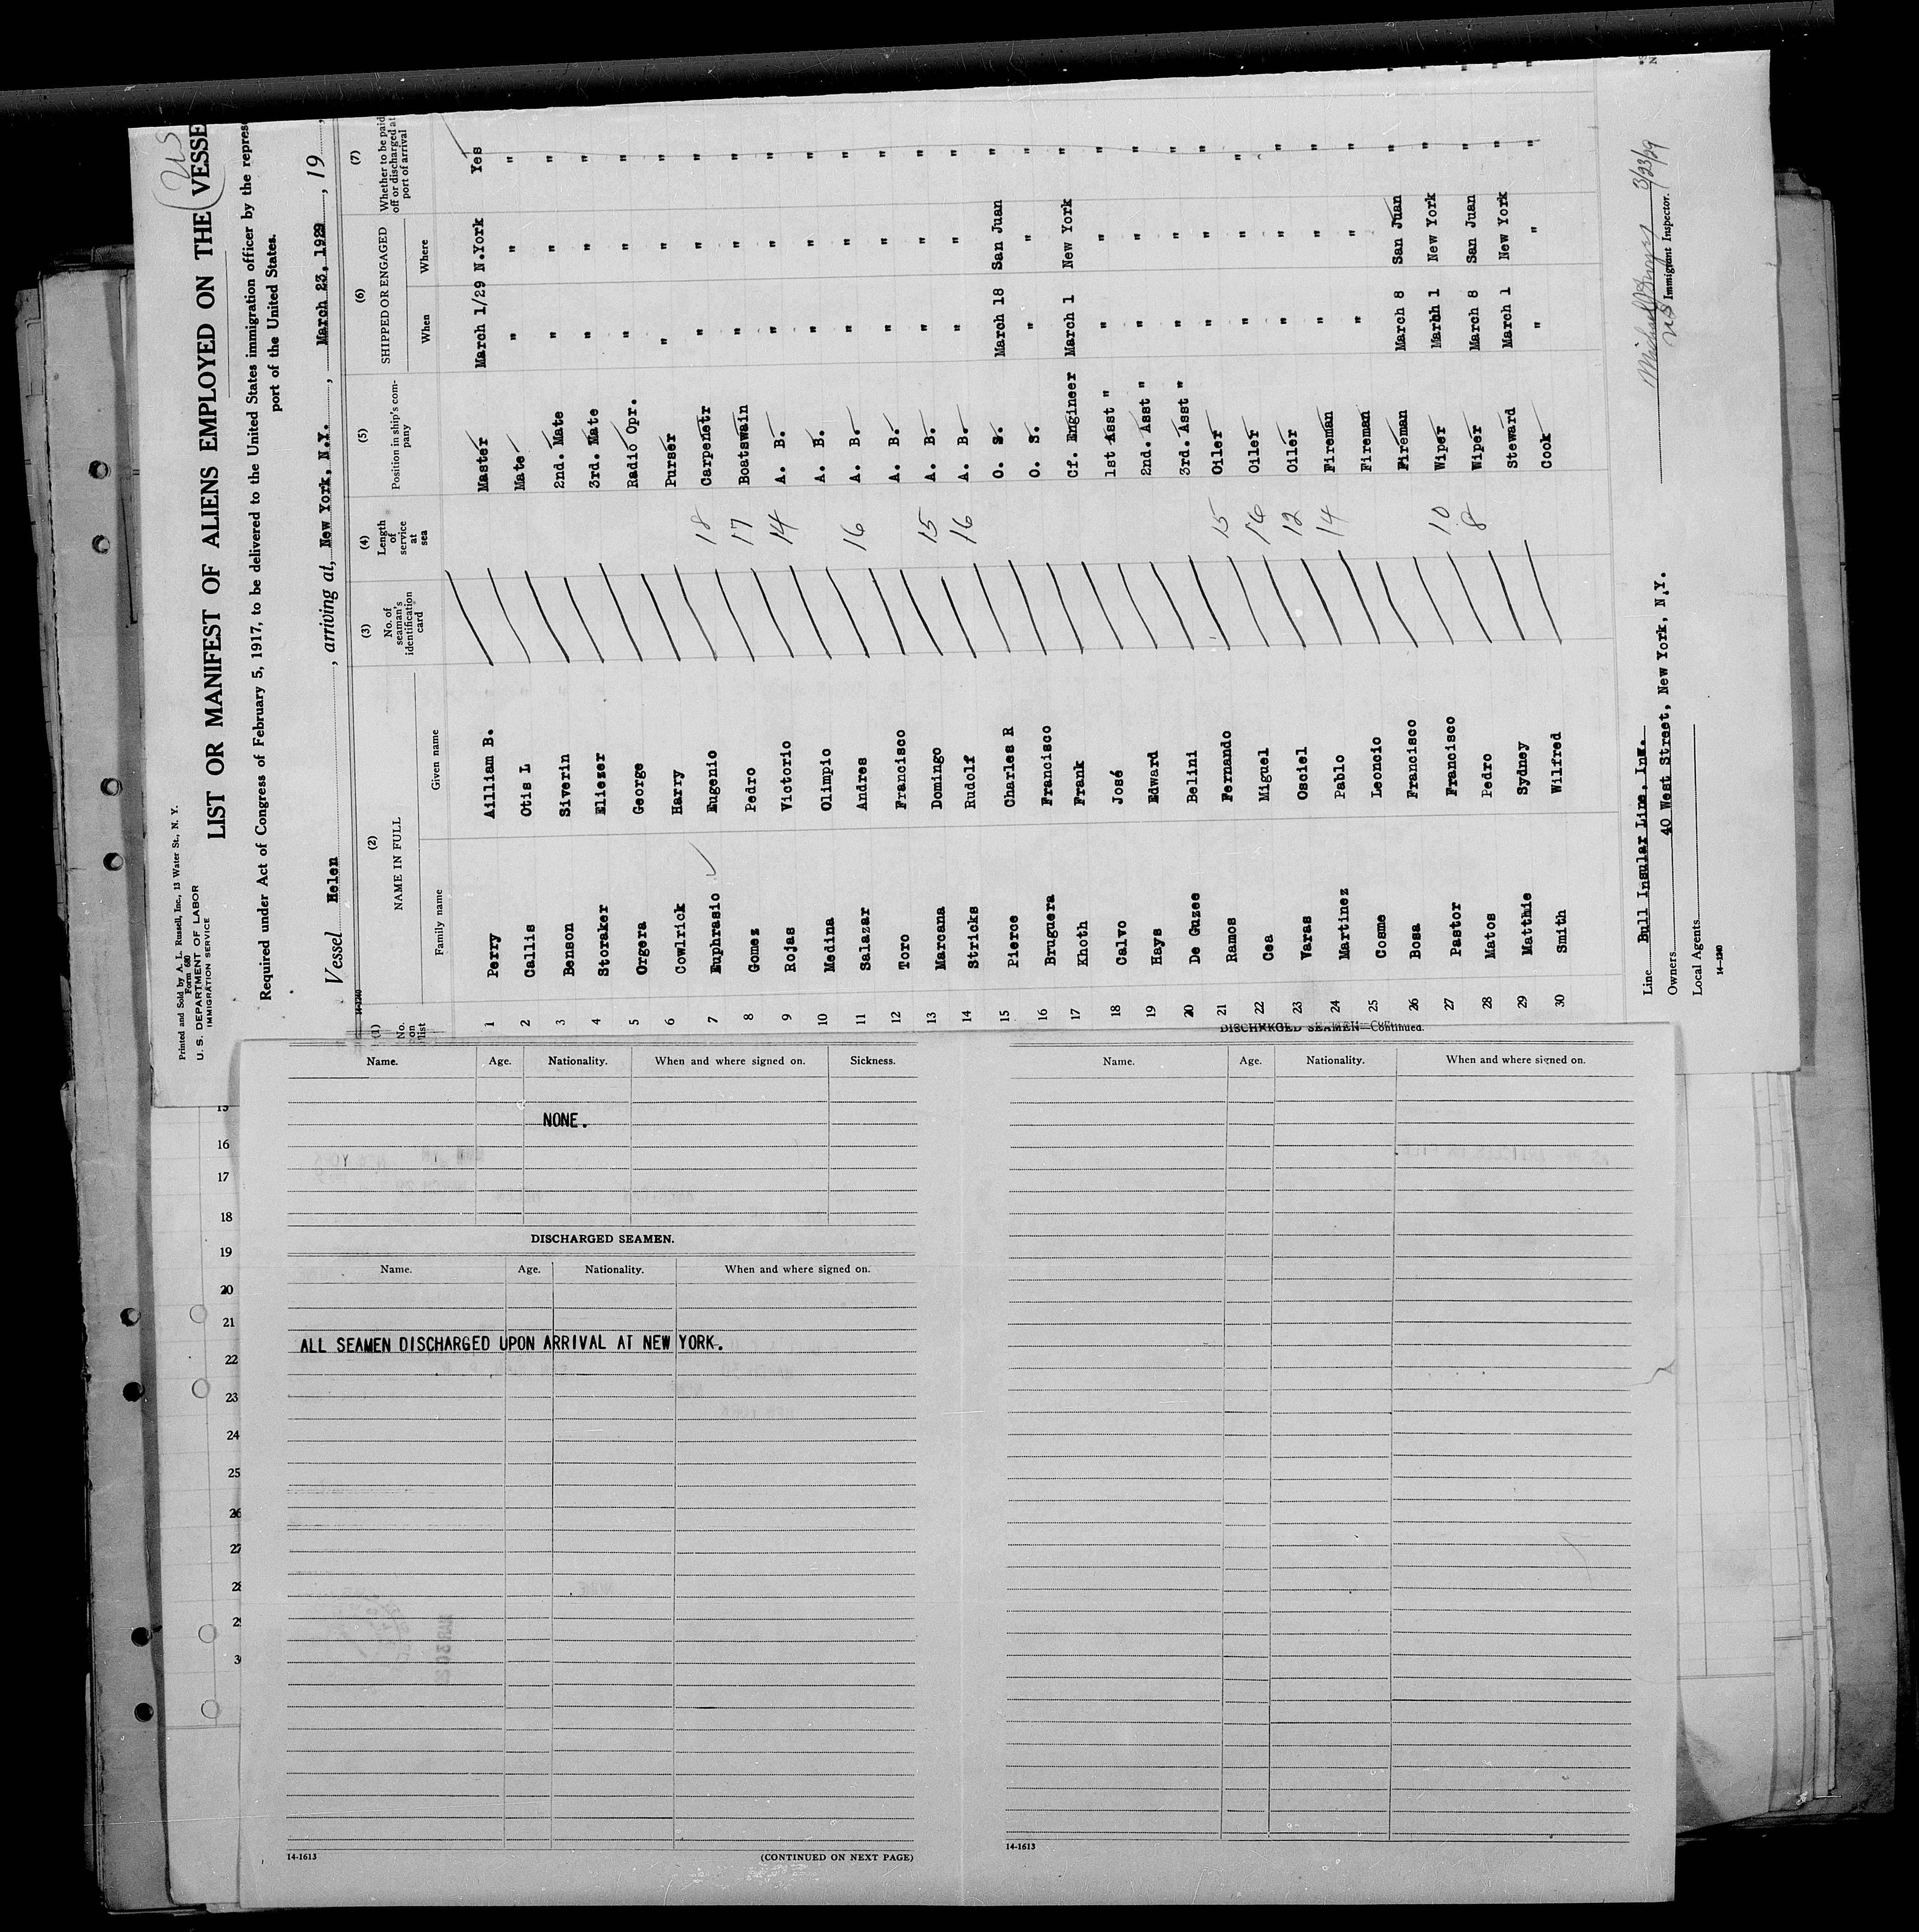 Printed and Sold by A. L. Russell, Inc., 13 Water St., N. Y.
Form 680
U. S. DEPARTMENT OF LABOR
IMMIGRATION SERVICE
US
LIST OR MANIFEST OF ALIENS EMPLOYED ON THE VESSE
Required under Act of Congress of February 5, 1917, to be delivered to the United States immigration officer by the repres
port of the United States.
Vessel Helen, arriving at, New York, N.Y., March 23, 1929, 19
14-1240
(1) (2) (3) (4) (5) (6) (7)
No. on list NAME IN FULL No. of seaman's identification card Length of service at sea Position in ship's company SHIPPED OR ENGAGED Whether to be paid off or discharged at port of arrival
Family name Given name When Where
1 Perry Ailliam B. Master March 1/29 N.York Yes
2 Callis Otis L Mate " " "
3 Benson Siverin 2nd. Mate " " "
4 Storaker Eliezer 3rd. Mate " " "
5 Orgera George Radio Opr. " " "
6 Cowlrick Harry Purser " " "
7 Euphrasio Eugenio 18 Carpenetr " " "
8 Gomez Pedro 17 Boatswain " " "
9 Rojas Victorio 14 A. B. " " "
10 Medina Olimpio A. B. " " "
11 Salazar Andres 16 A. B. " " "
12 Toro Francisco A. B. " " "
13 Marcana Domingo 15 A. B. " " "
14 Stricks Rudolf 16 A. B. " " "
15 Pierce Charles R O. S. March 18 San Juan "
16 Bruguera Francisco O. S. " " "
17 Khoth Frank Cf. Engineer March 1 New York "
18 Calvo José 1st Asst " " " "
19 Hays Edward 2nd. Asst " " " "
20 De Guzee Belini 3rd. Asst " " " "
21 Ramos Fernando 15 Oiler " " "
22 Cea Miguel 16 Oiler " " "
23 Varas Osciel 12 Oiler " " "
24 Martinez Pablo 14 Fireman " " "
25 Cosme Leoncio Fireman " " "
26 Bosa Francisco Fireman March 8 San Juan "
27 Pastor Francisco 10 Wiper March 1 New York "
28 Matos Pedro 8 Wiper March 8 San Juan "
29 Matthie Sydney Steward March 1 New York "
30 Smith Wilfred Cook " " "
Line Bull Insular Line, Inc.
Owners 40 West Street, New York, N.Y.
Local Agents
14-1240
3/23/29
US Immigrant Inspector.
Name. Age. Nationality. When and where signed on. Sickness.
NONE.
DISCHARGED SEAMEN.
Name. Age. Nationality. When and where signed on.
ALL SEAMEN DISCHARGED UPON ARRIVAL AT NEW YORK.
14-1613
(CONTINUED ON NEXT PAGE)
DISCHARGED SEAMEN—Continued.
Name. Age. Nationality. When and where signed on.
14-1613
15
16
17
18
19
20
21
22
23
24
25
26
27